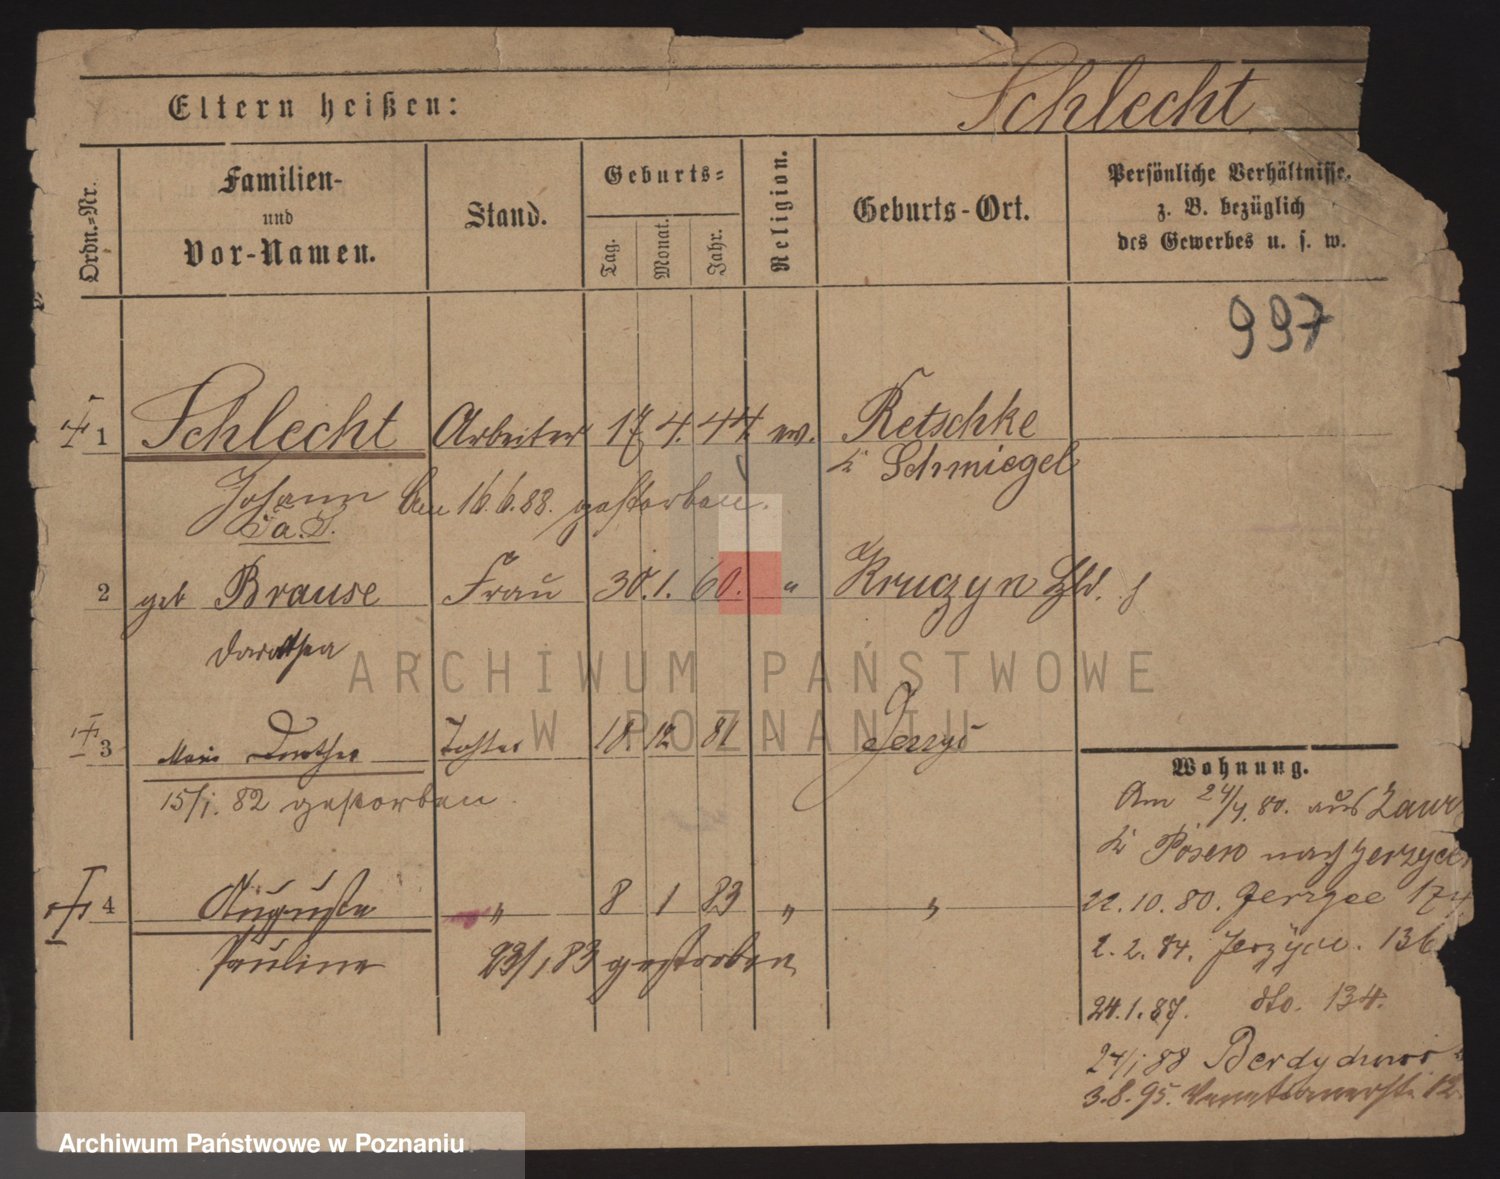 Eltern heißen: Schlecht
Ordn.-Nr.
Familien-
und
Vor-Namen.
Stand.
Geburts-
Tag. Monat. Jahr.
Religion.
Geburts-Ort.
Persönliche Verhältnisse,
z. B. bezüglich
des Gewerbes u. s. w.
997
1 Schlecht Arbeiter 17 4. 44. ev. Retschke
Kr Schmiegel
Johann am 16.6.88. gestorben.
2 geb Brause Frau 30. 1. 60. " Kruczyn
Dorothea
3 Marie Dorothea Tochter 18 12 81 Jerzyc
15/1. 82 gestorben
4 Auguste " 8 1 83 " "
Pauline 23/1 83 gestorben
Wohnung.
Am 24/4. 80. aus
Kr Posen nach Jerzyce
22.10.80. Jerzyce
2.2.84. Jerzyce. 136
24.1.87. dto. 134.
3.8.95.
ARCHIWUM PAŃSTWOWE
W POZNANIU
Archiwum Państwowe w Poznaniu